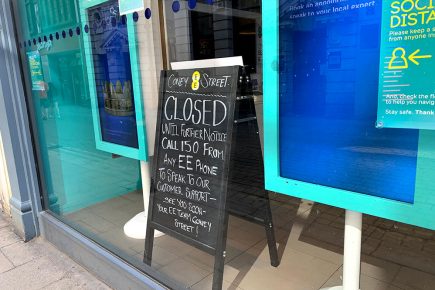 CONEY EE STREET
CLOSED
UNTIL FURTHER NOTICE
CALL 150 FROM
ANY EE PHONE
TO SPEAK TO OUR
CUSTOMER SUPPORT
- SEE YOU SOON -
YOUR EE TEAM CONEY
STREET!
Speak to your local expert
SOCI
DISTA
Please keep a
from anyone in
And, check the fl
to help you navig
Stay safe. Thank